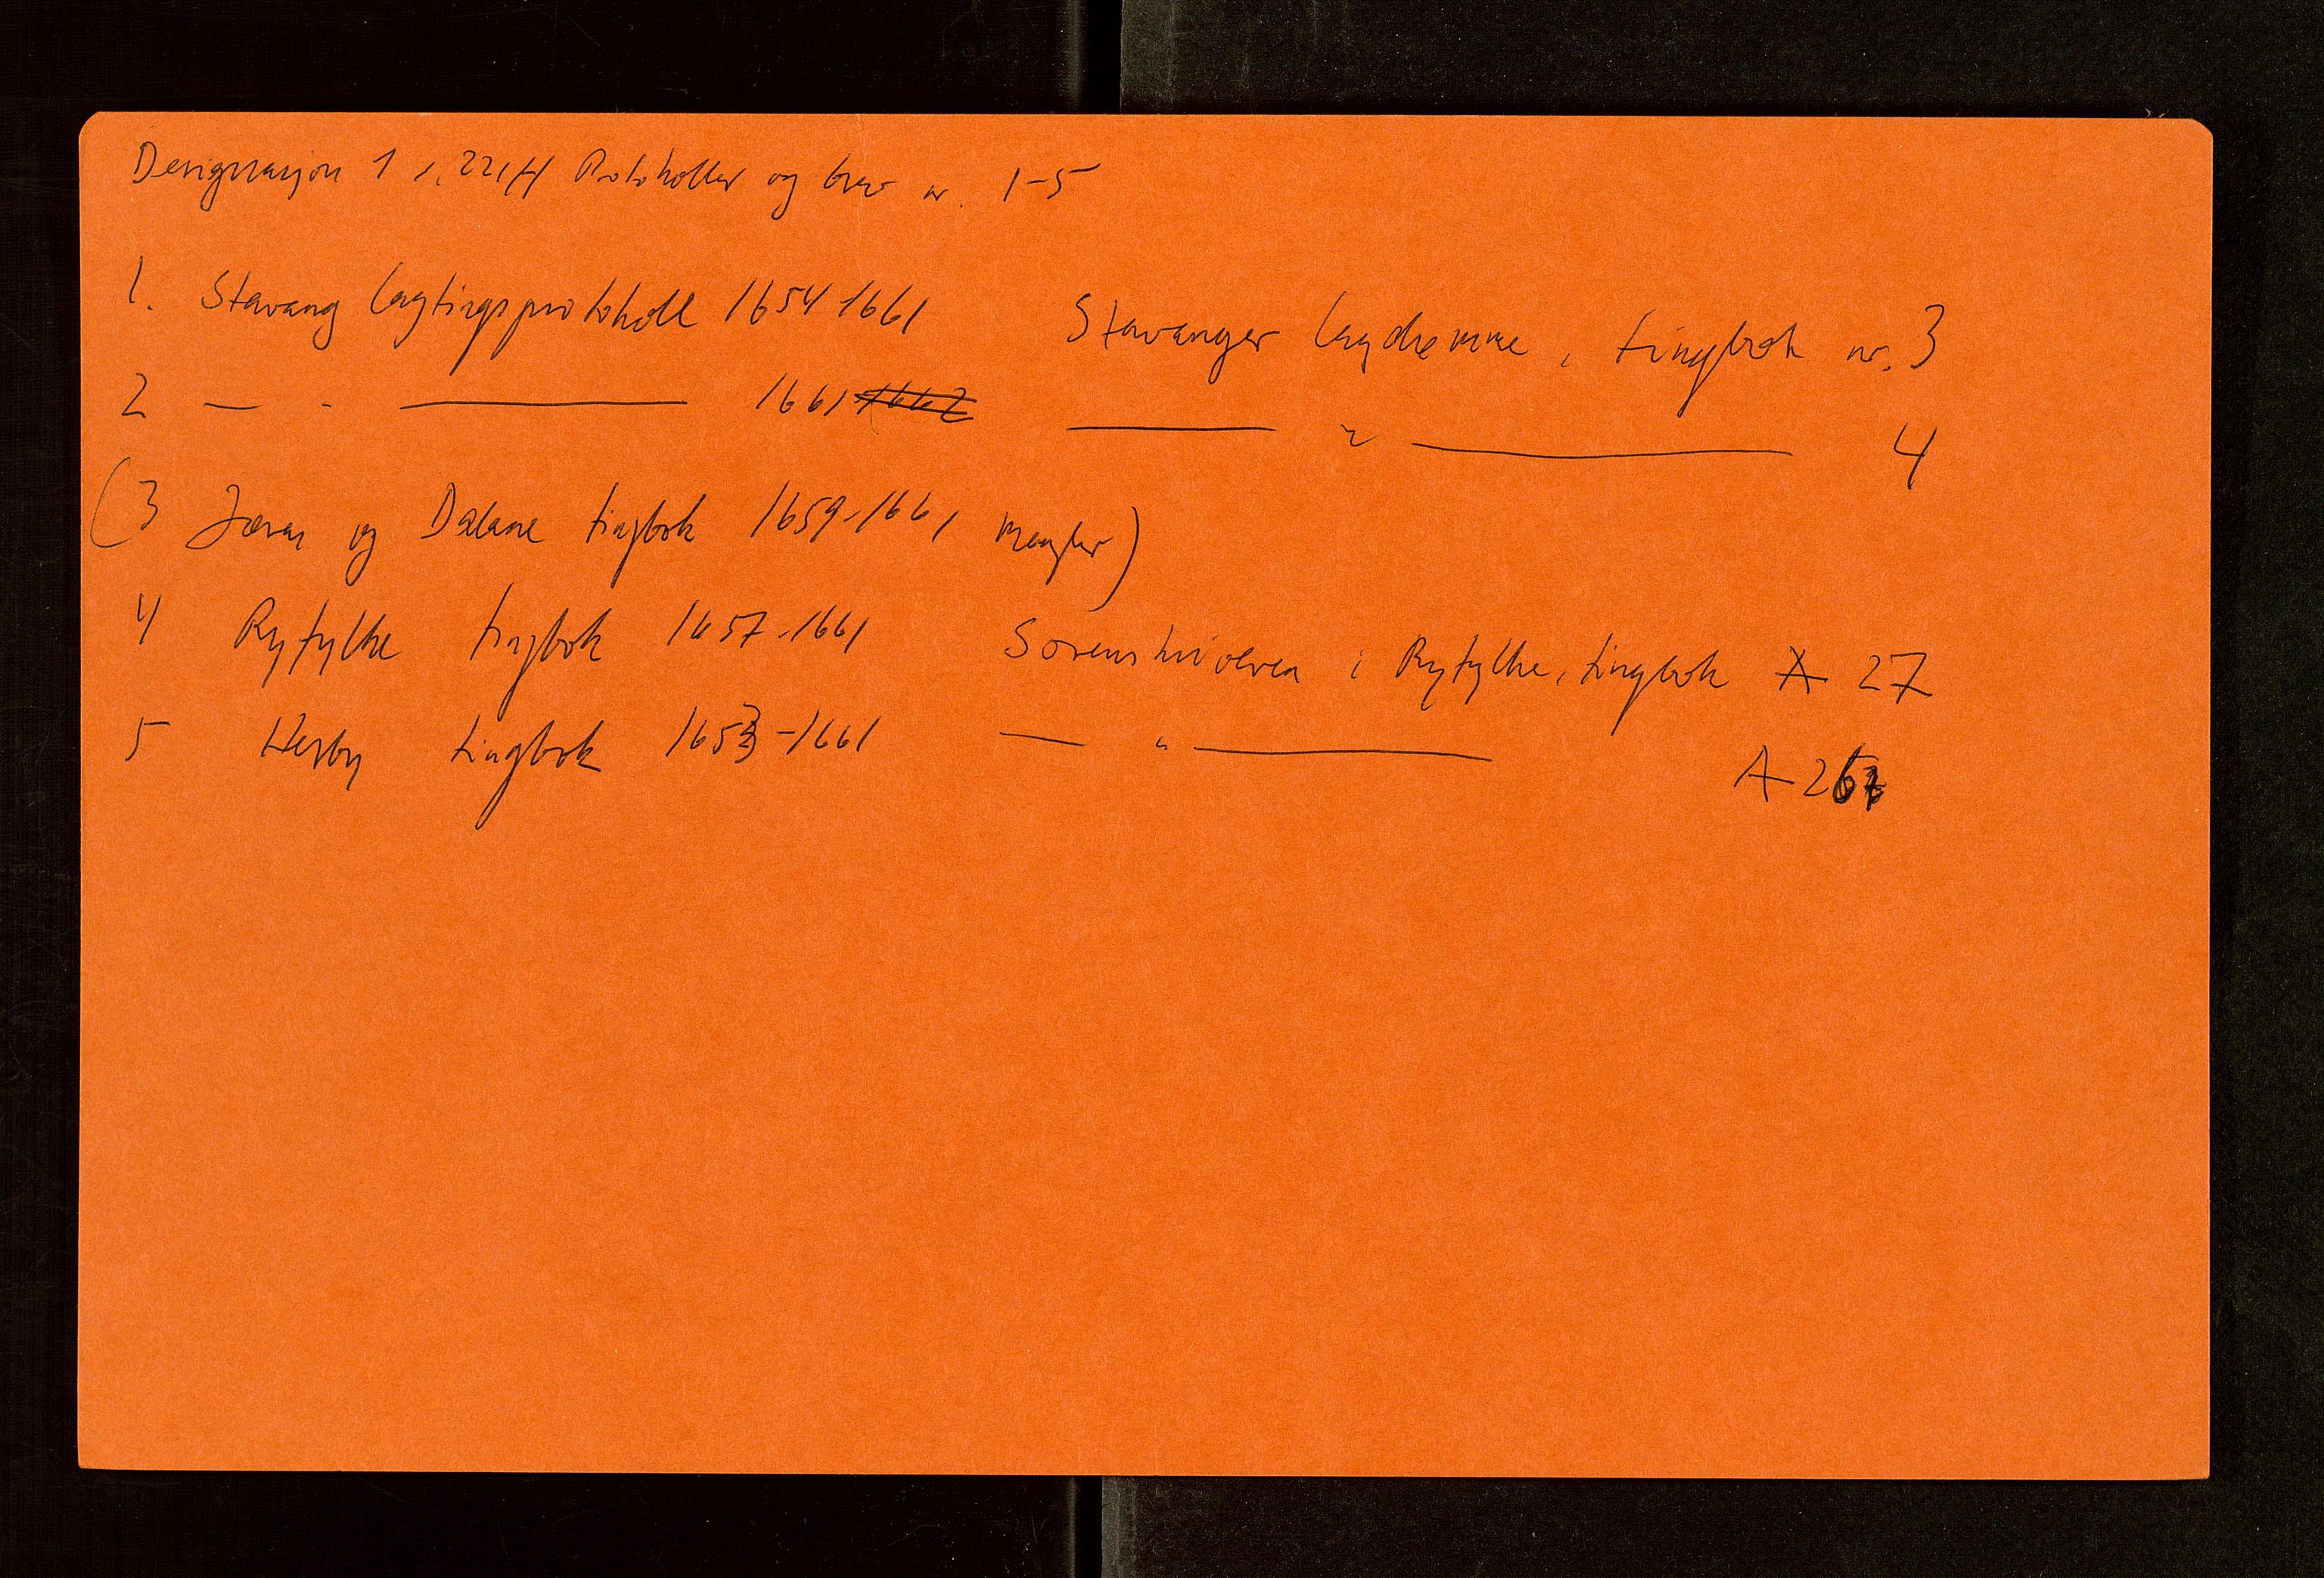 Designasjon 1 s. 221ff Protokoller og brev nr. 1-5
1. Stavang lagtingsprotokoll 1654-1661 Stavanger lagdømme, tingbok nr. 3
2 — " — 1661 — " — 4
(3 Jæren og Dalane tingbok 1659-1661 mangler)
4 Ryfylke tingbok 1657-1661 Sorenskriveren i Ryfylke, tingbok A 27
5 Hesby tingbok 1653-1661 — " — A 26